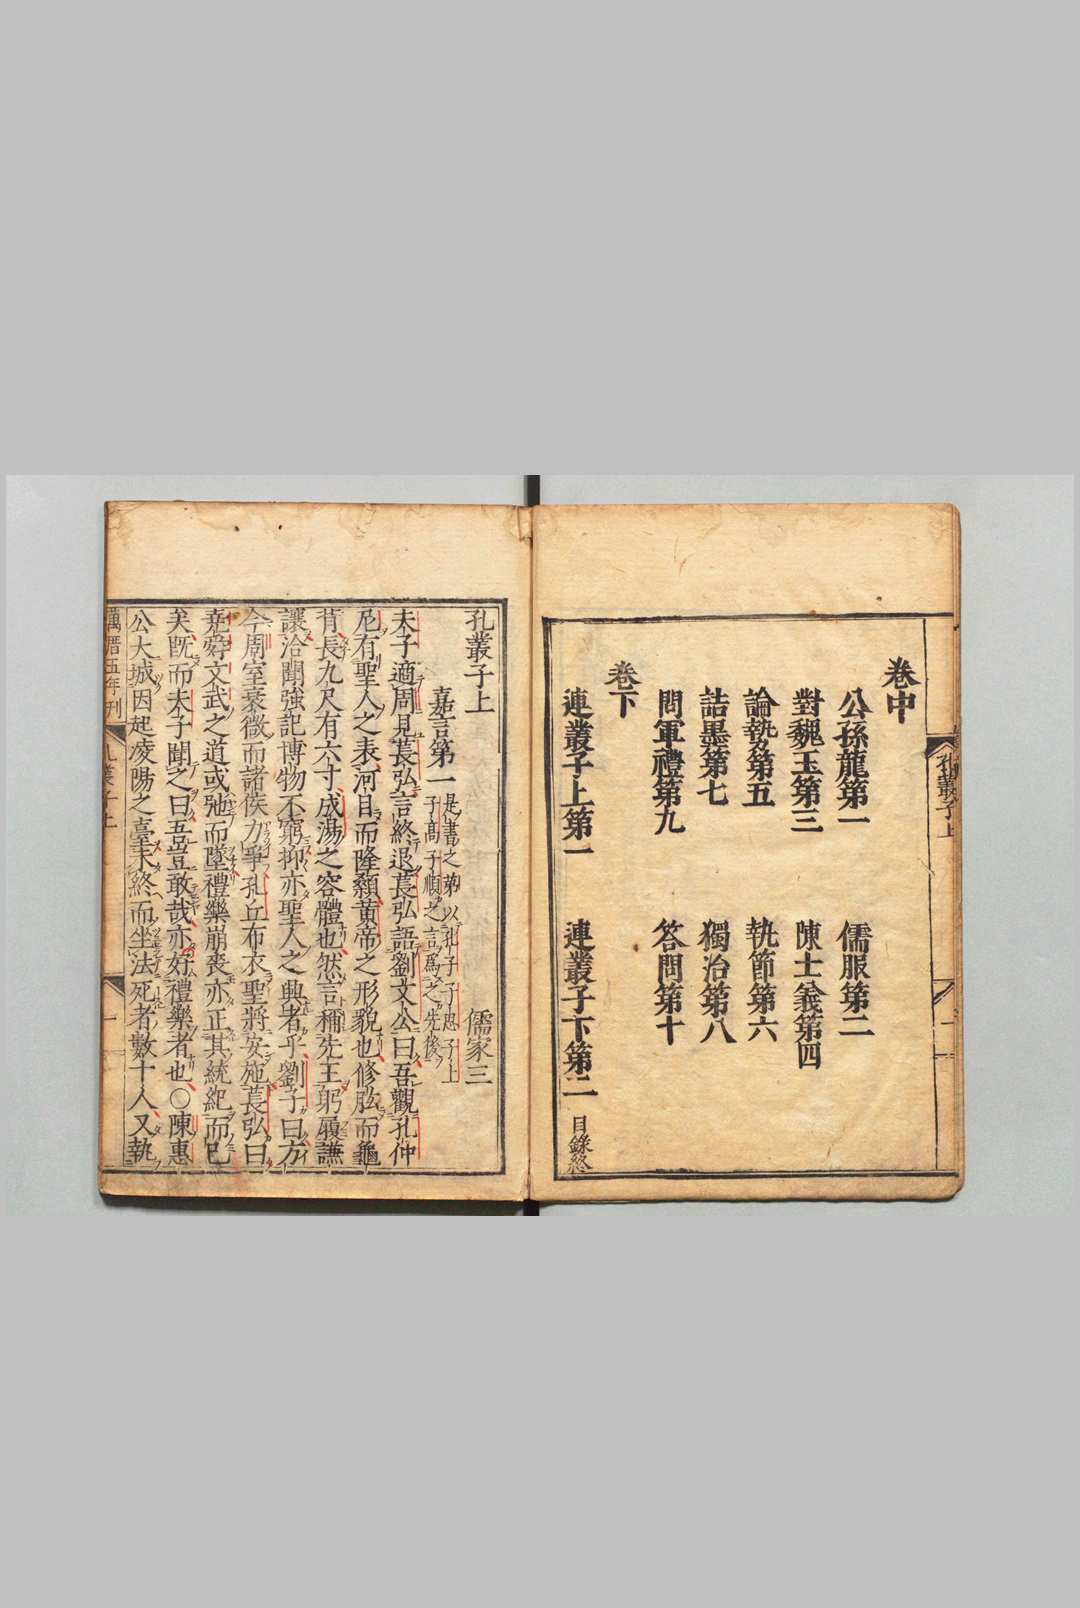 卷中
公孫龍第一　儒服第二
對魏王第三　陳士義第四
論勢第五　執節第六
詰墨第七　獨治第八
問軍禮第九　答問第十
卷下
連叢子上第一　連叢子下第二　目錄終
孔叢子上　儒家三
嘉言第一　是書之弟以孔子子思子上子高子順之言爲之先後
夫子適周見萇弘言終退萇弘語劉文公曰吾觀孔仲
尼有聖人之表河目而隆顙黃帝之形貌也修肱而龜
背長九尺有六寸成湯之容體也然言稱先王躬履謙
讓洽聞強記博物不窮抑亦聖人之興者乎劉子曰方
今周室衰微而諸侯力爭孔丘布衣聖將安施萇弘曰
堯舜文武之道或弛而墜禮樂崩喪亦正其統紀而已
矣既而夫子聞之曰吾豈敢哉亦好禮樂者也○陳惠
公大城因起凌陽之臺未終而坐法死者數十人又執
萬曆五年刊　孔叢子上　一
孔叢子上